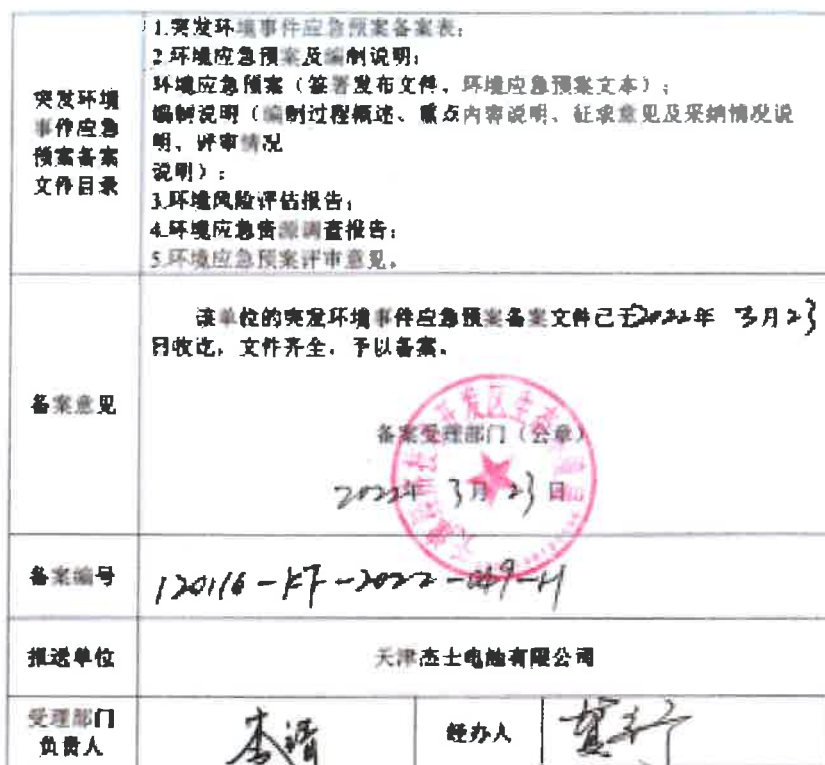 突发环境
事件应急
预案备案
文件目录
1.突发环境事件应急预案备案表；
2.环境应急预案及编制说明；
环境应急预案（签署发布文件、环境应急预案文本）；
编制说明（编制过程概述、重点内容说明、征求意见及采纳情况说
明、评审情况
说明）；
3.环境风险评估报告；
4.环境应急资源调查报告；
5.环境应急预案评审意见。
备案意见
该单位的突发环境事件应急预案备案文件已于2022年 3月23
日收讫，文件齐全，予以备案。
备案受理部门（公章）
2022年 3月 23日
备案编号
120116-KF-2022-049-H
报送单位
天津杰士电池有限公司
受理部门
负责人
李清
经办人